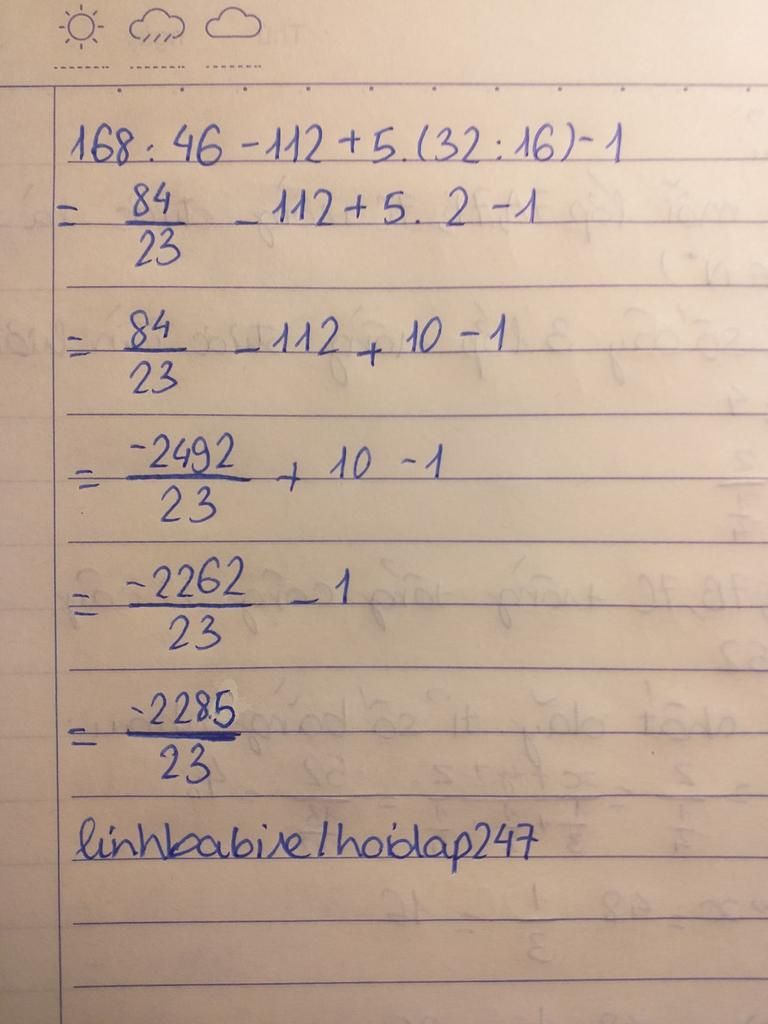 168 : 46 - 112 + 5 . (32 : 16) - 1
= 84/23 - 112 + 5 . 2 - 1
= 84/23 - 112 + 10 - 1
= -2492/23 + 10 - 1
= -2262/23 - 1
= -2285/23
linhbabire/hoidap247